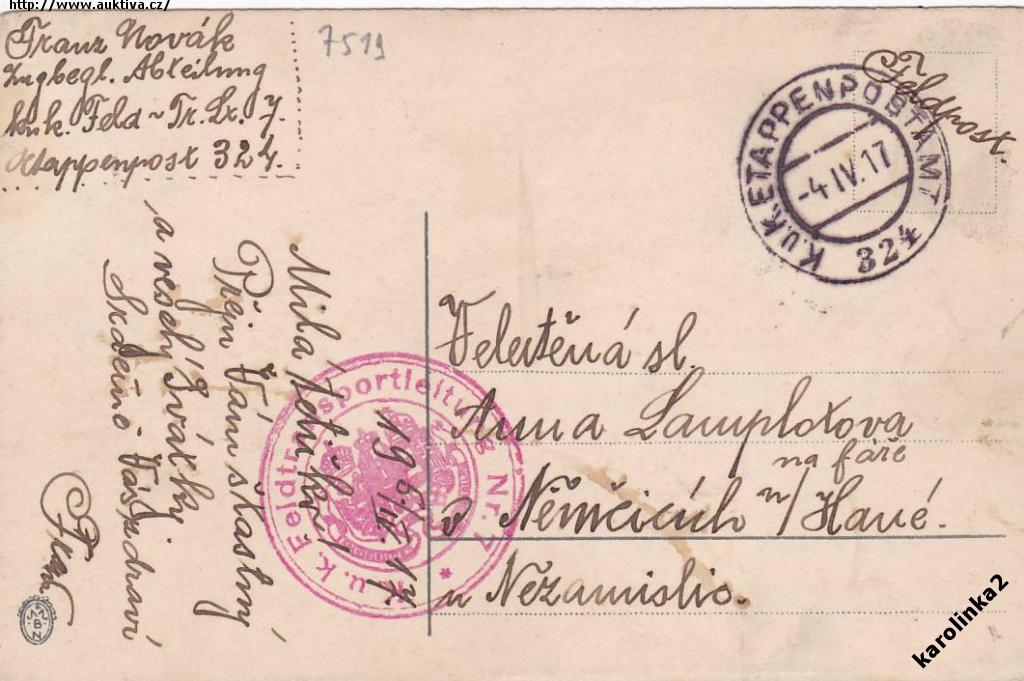 http://www.auktiva.cz/
Franz Novák
Zugbegl. Abteilung
k.u.k. Feld-Tr. Lt. 7.
Etappenpost 324.
7519
Feldpost.
K.u.K. ETAPPENPOSTAMT
-4.IV.17
324
Milá
19 30/III. 17
Přeju Vám šťastný
a veselý Svátky.
Srdečně Vás zdraví
Franz
K.u.k. Feldtransportleitung Nr. 7 *
Velectěná sl.
Anna Lamplotova
na faře
v Němčicích n/Hané.
u Nezamislic.
M.B.N
karolinka2